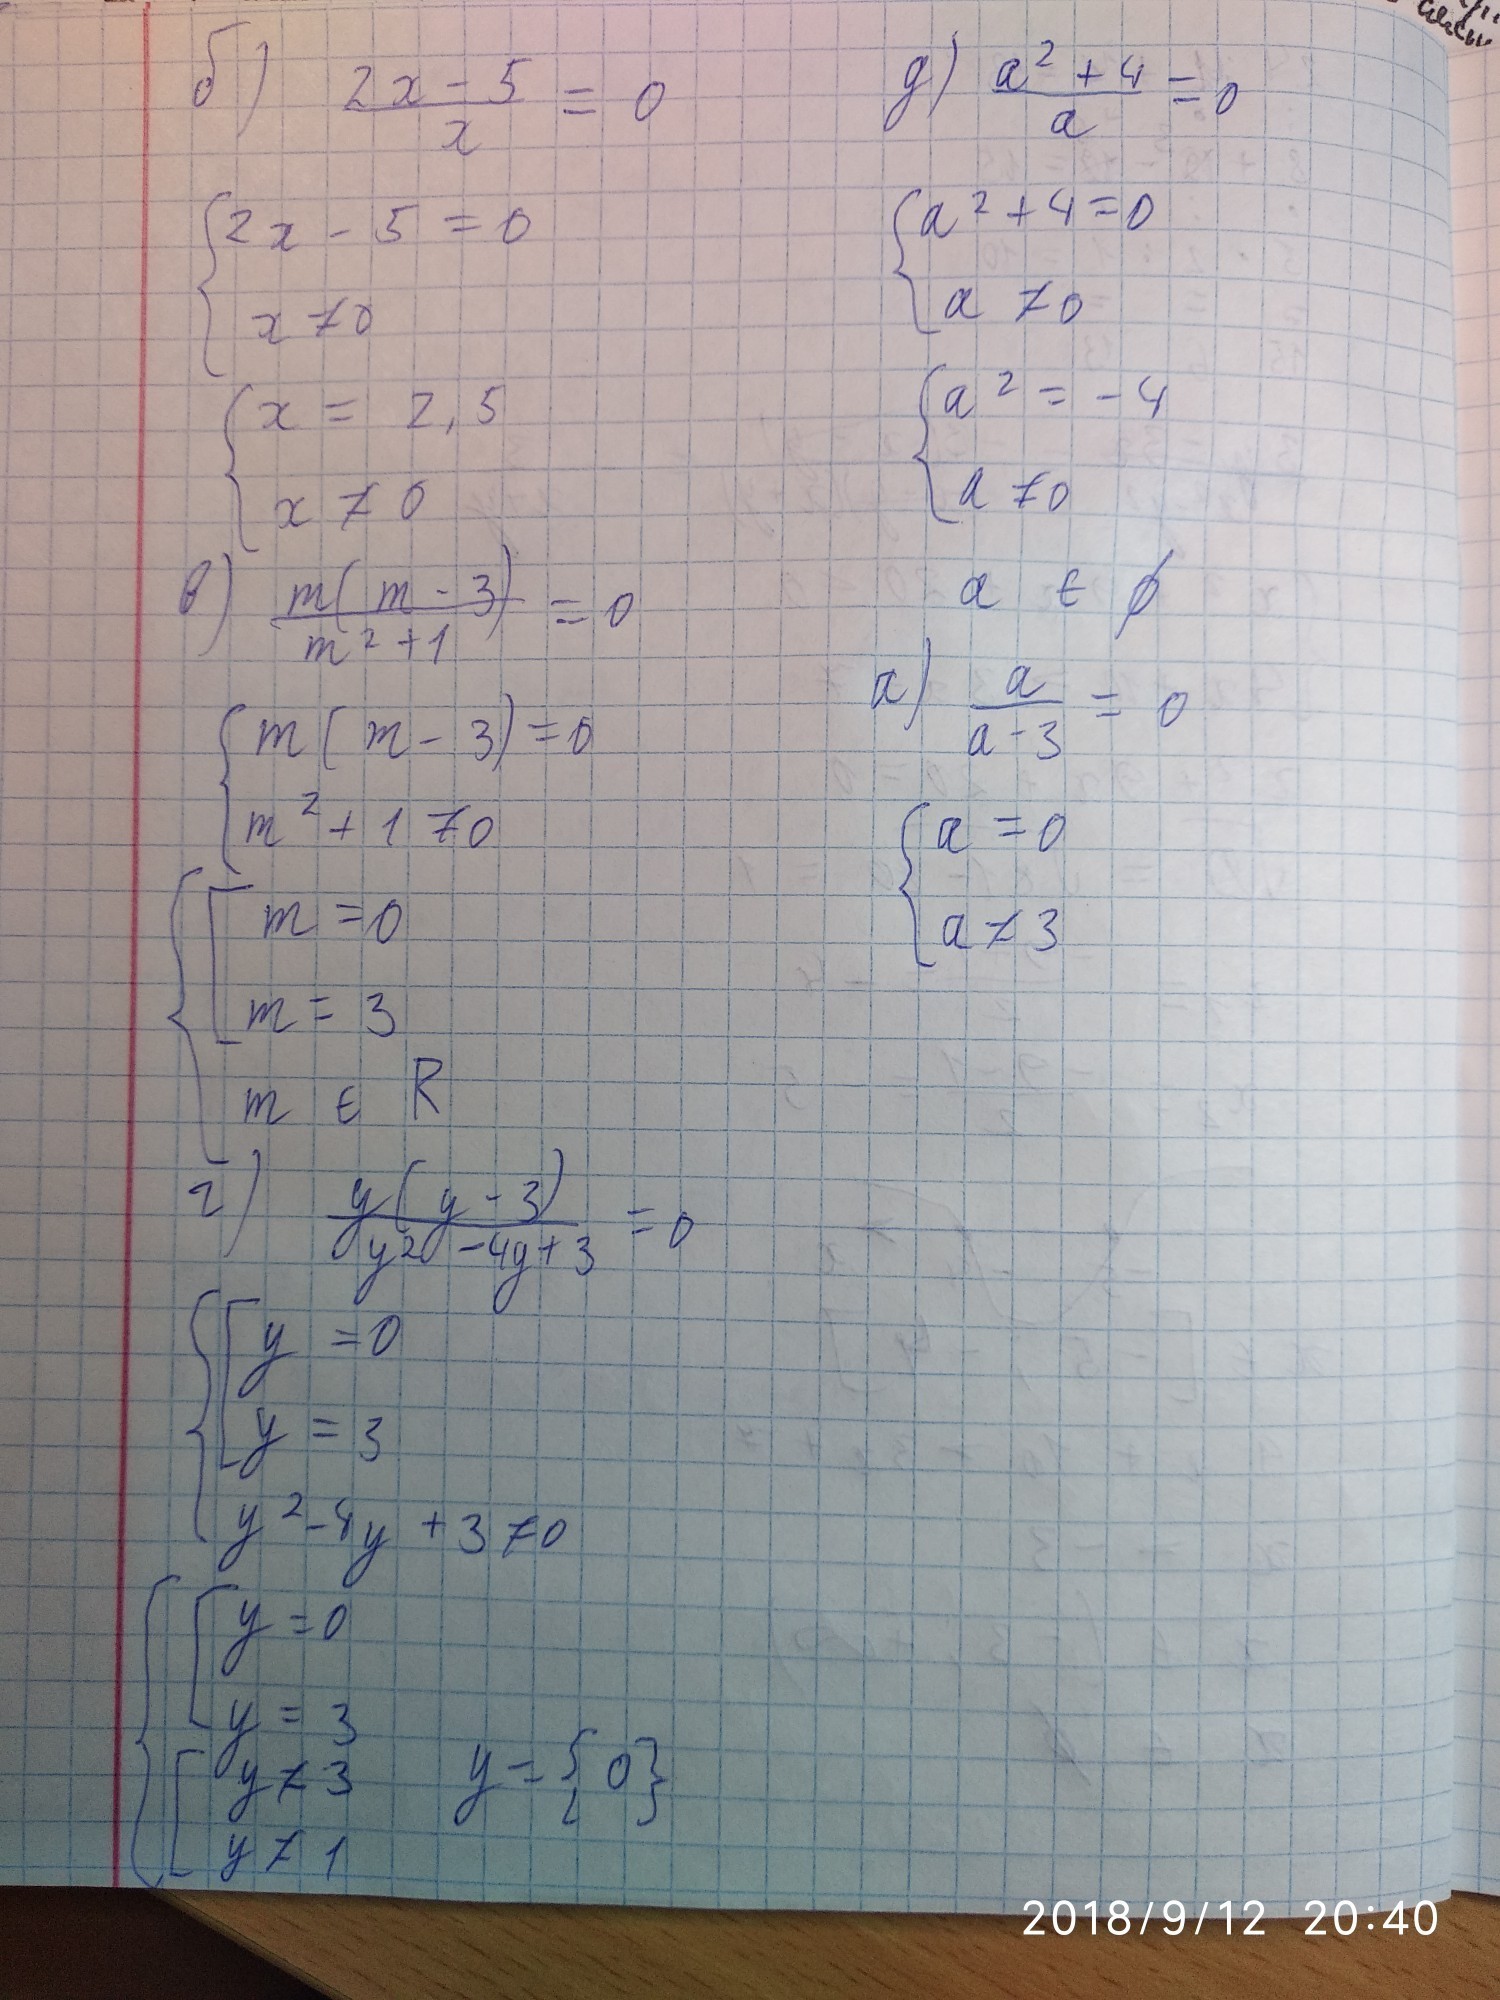 б) (2x - 5)/x = 0
{2x - 5 = 0
x ≠ 0
{x = 2,5
x ≠ 0
в) m(m - 3)/(m² + 1) = 0
{m(m - 3) = 0
m² + 1 ≠ 0
{[m = 0
m = 3
m ∈ R
г) y(y - 3)/(y² - 4y + 3) = 0
{[y = 0
y = 3
y² - 4y + 3 ≠ 0
{[y = 0
y = 3
[y ≠ 3
y ≠ 1
y = {0}
д) (a² + 4)/a = 0
{a² + 4 = 0
a ≠ 0
{a² = -4
a ≠ 0
a ∈ ∅
а) a/(a - 3) = 0
{a = 0
a ≠ 3
2018/9/12 20:40